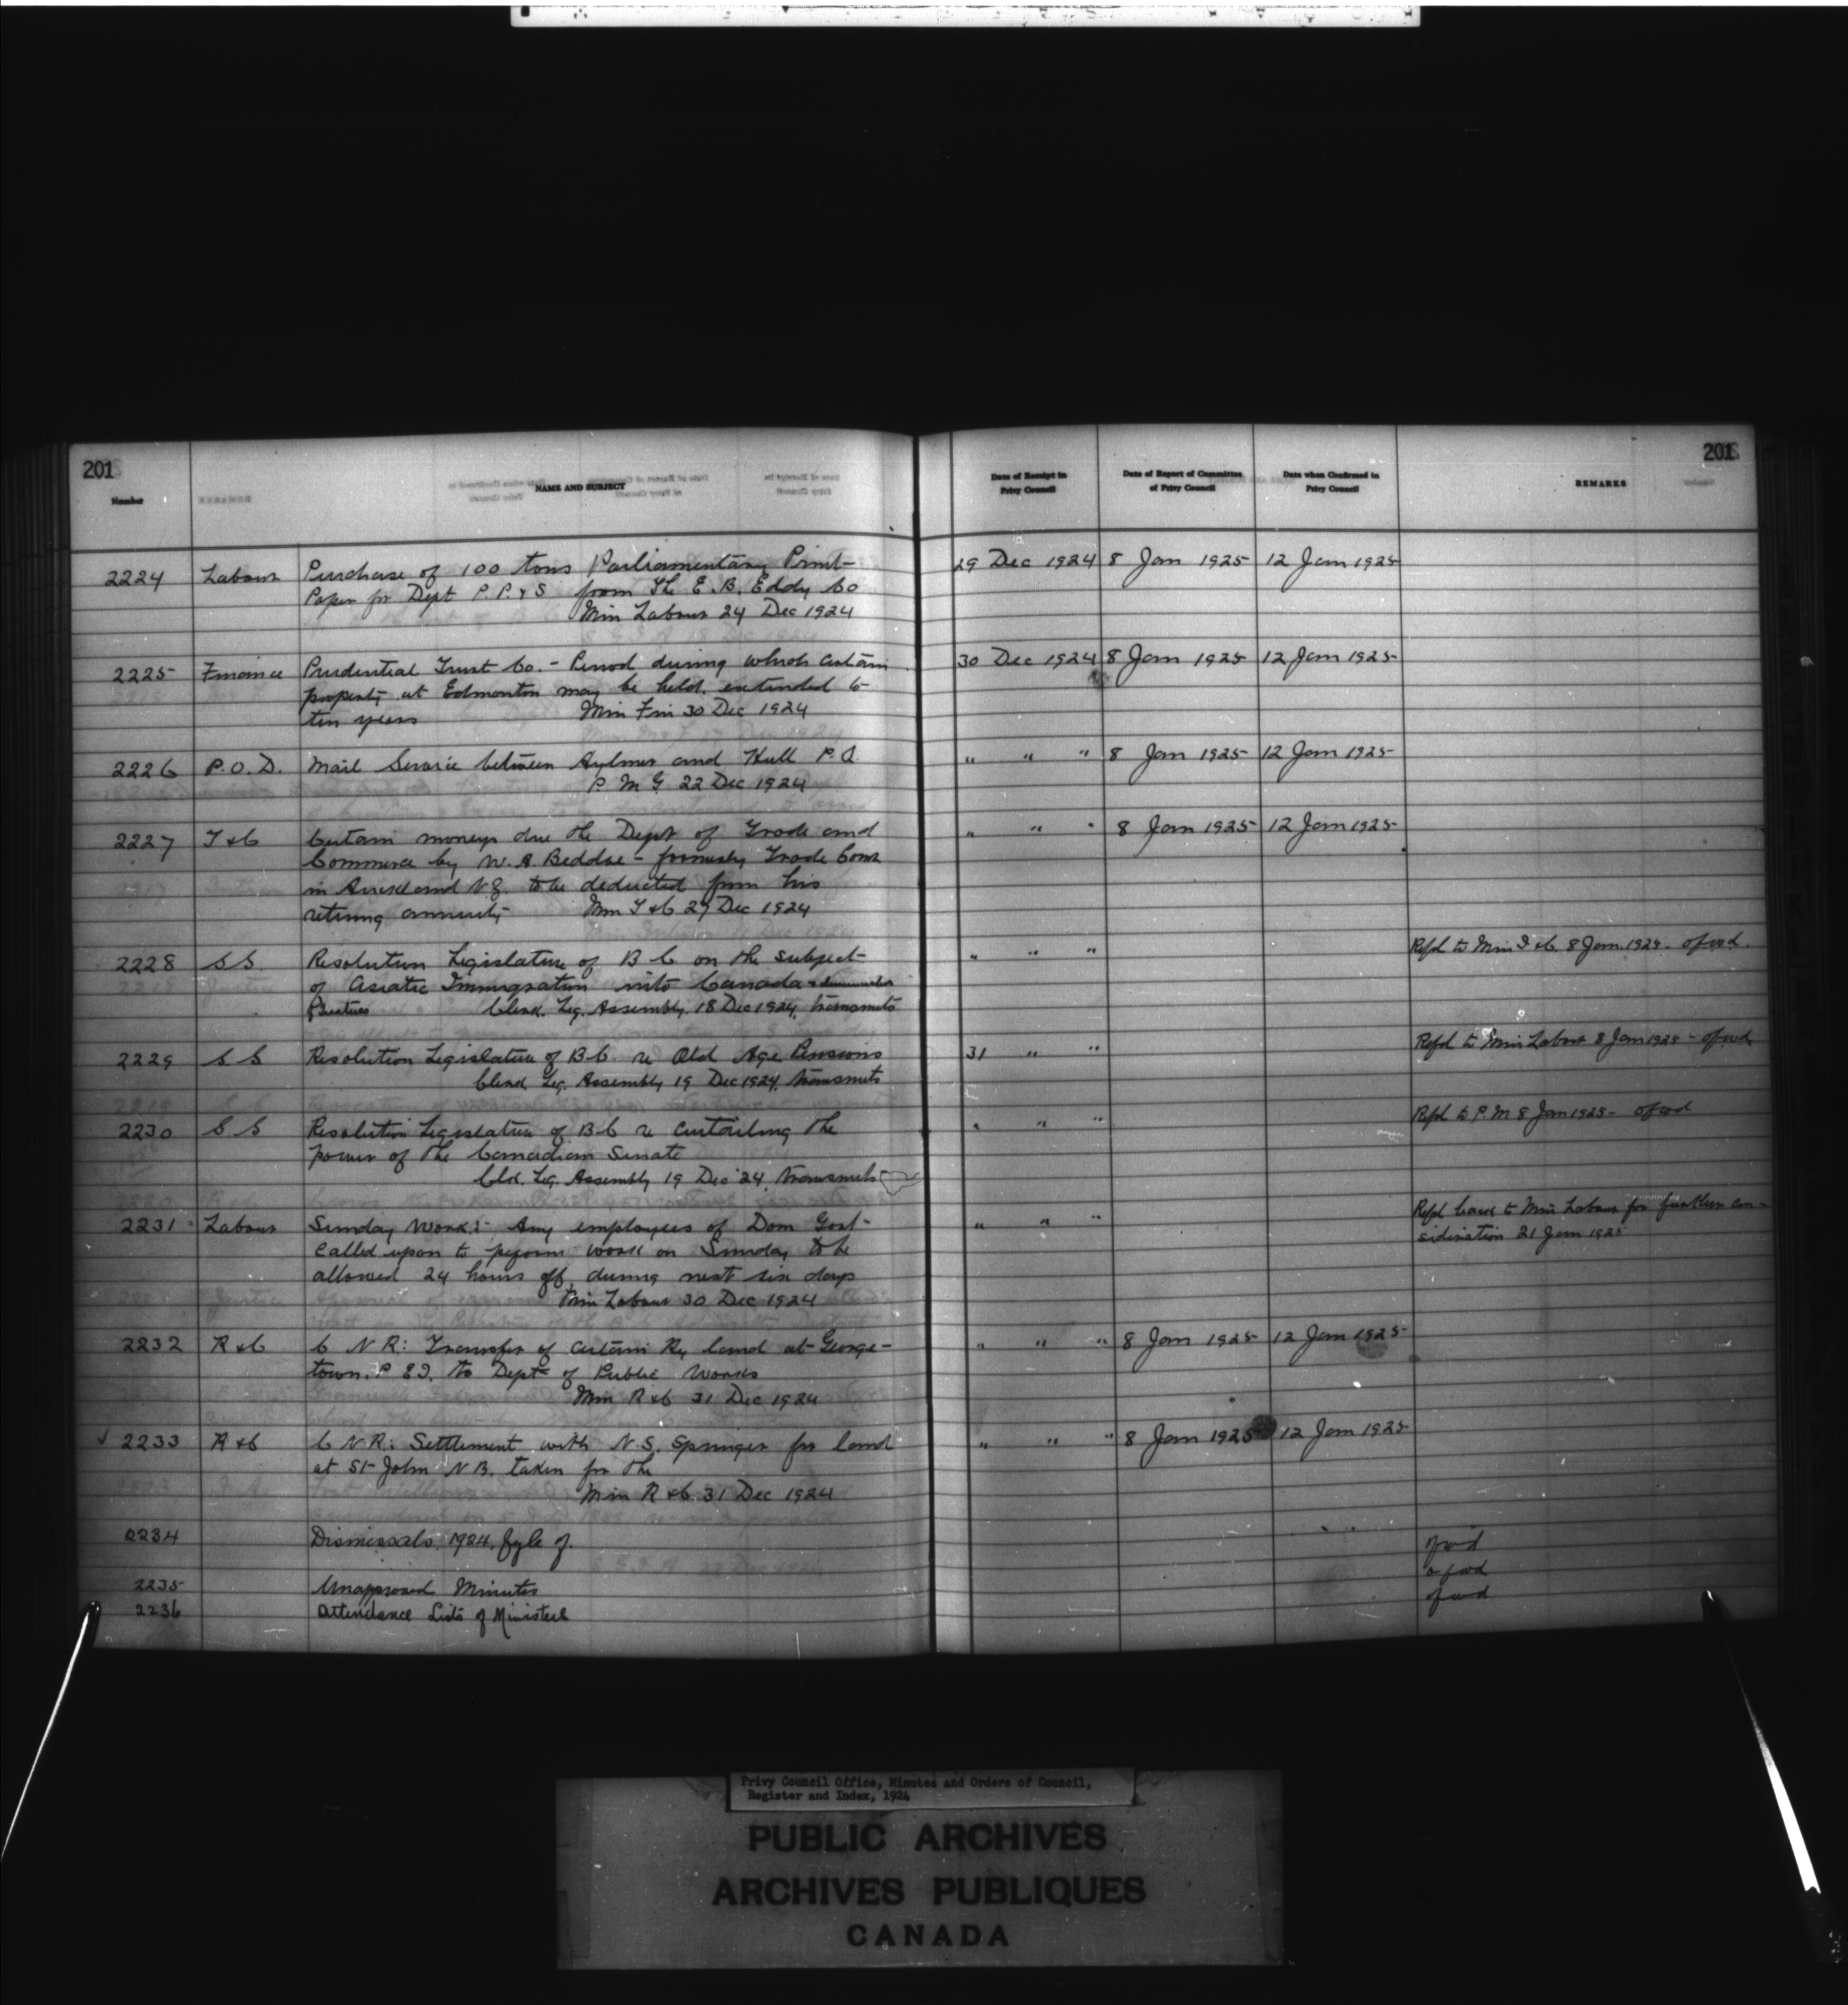 201
201
Number
NAME AND SUBJECT
Date of Receipt in Privy Council
Date of Report of Committee of Privy Council
Date when Confirmed in Privy Council
REMARKS
2224 Labour Purchase of 100 tons Parliamentary Print- 29 Dec 1924 8 Jan 1925 12 Jan 1925
Paper for Dept P.P. & S from The E.B. Eddy Co
Min Labour 24 Dec 1924
2225 Finance Prudential Trust Co. - Period during which certain 30 Dec 1924 8 Jan 1925 12 Jan 1925
property at Edmonton may be held, extended to
ten years Min Fin 30 Dec 1924
2226 P.O.D. Mail Service between Aylmer and Hull P.Q. " " " 8 Jan 1925 12 Jan 1925
P M G 22 Dec 1924
2227 T & C Certain moneys due the Dept of Trade and " " " 8 Jan 1925 12 Jan 1925
Commerce by W.A. Beddoe - formerly Trade Comr
in Auckland N.Z. to be deducted from his
retiring annuity Min T & C 27 Dec 1924
2228 S S Resolution Legislature of B C on the subject " " " Refd to Min I & C. 8 Jan. 1925 - of wd.
of Asiatic Immigration into Canada &
Clerk. Leg. Assembly 18 Dec 1924, transmits
2229 S S Resolution Legislature of B.C. re Old Age Pensions 31 " " Refd to Min Labour 8 Jan 1925 - of wd
Clerk Leg. Assembly 19 Dec 1924, transmits
2230 S S Resolution Legislature of B C re curtailing the " " " Refd to P.M 8 Jan 1925 - of wd
power of the Canadian Senate
Clk. Leg. Assembly 19 Dec '24, transmits
2231 Labour Sunday Work:- Any employees of Dom Govt- " " " Refd back to Min Labour for further con-
called upon to perform work on Sunday to be sideration 21 Jan 1925
allowed 24 hours off, during next six days
Min Labour 30 Dec 1924
2232 R & C C N R: Transfer of certain Ry land at George- " " " 8 Jan 1925 12 Jan 1925
town, P E I, to Dept of Public Works
Min R & C 31 Dec 1924
✓ 2233 R & C C N R: Settlement with N.S. Springer for land " " " 8 Jan 1925 12 Jan 1925
at St John N B. taken for the
Min R & C. 31 Dec 1924
2234 Dismissals, 1924, fyle of. of wd
2235 Unapproved Minutes of wd
2236 Attendance Lists of Ministers of wd
Privy Council Office, Minutes and Orders of Council,
Register and Index, 1924
PUBLIC ARCHIVES
ARCHIVES PUBLIQUES
CANADA